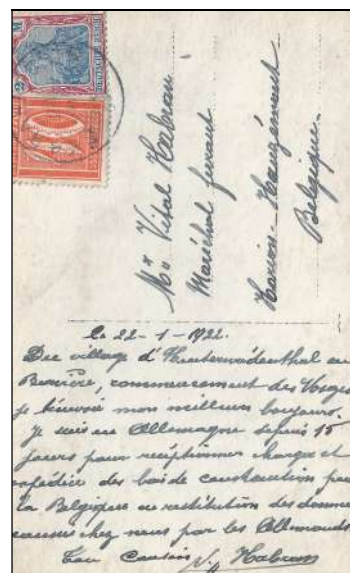 Mr. Vital Habran
Maréchal ferrant
Belgique.
le 22-1-1922.
Du village d'Hinterweidenthal en
Bavière, commencement des Vosges
je t'envoie mon meilleur bonjour.
Je suis en Allemagne depuis 15
jours pour réceptionner charger et
expédier des bois de construction pour
la Belgique en restitution des dommages
causés chez nous par les Allemands.
Ton Cousin Habran